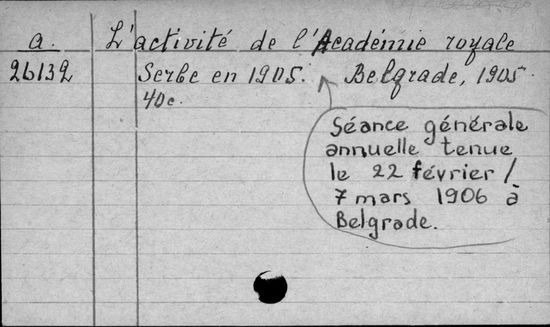 a. L'activité de l'Académie royale
26132 Serbe en 1905. Belgrade, 1905.
40c.
Séance générale
annuelle tenue
le 22 février /
7 mars 1906 à
Belgrade.